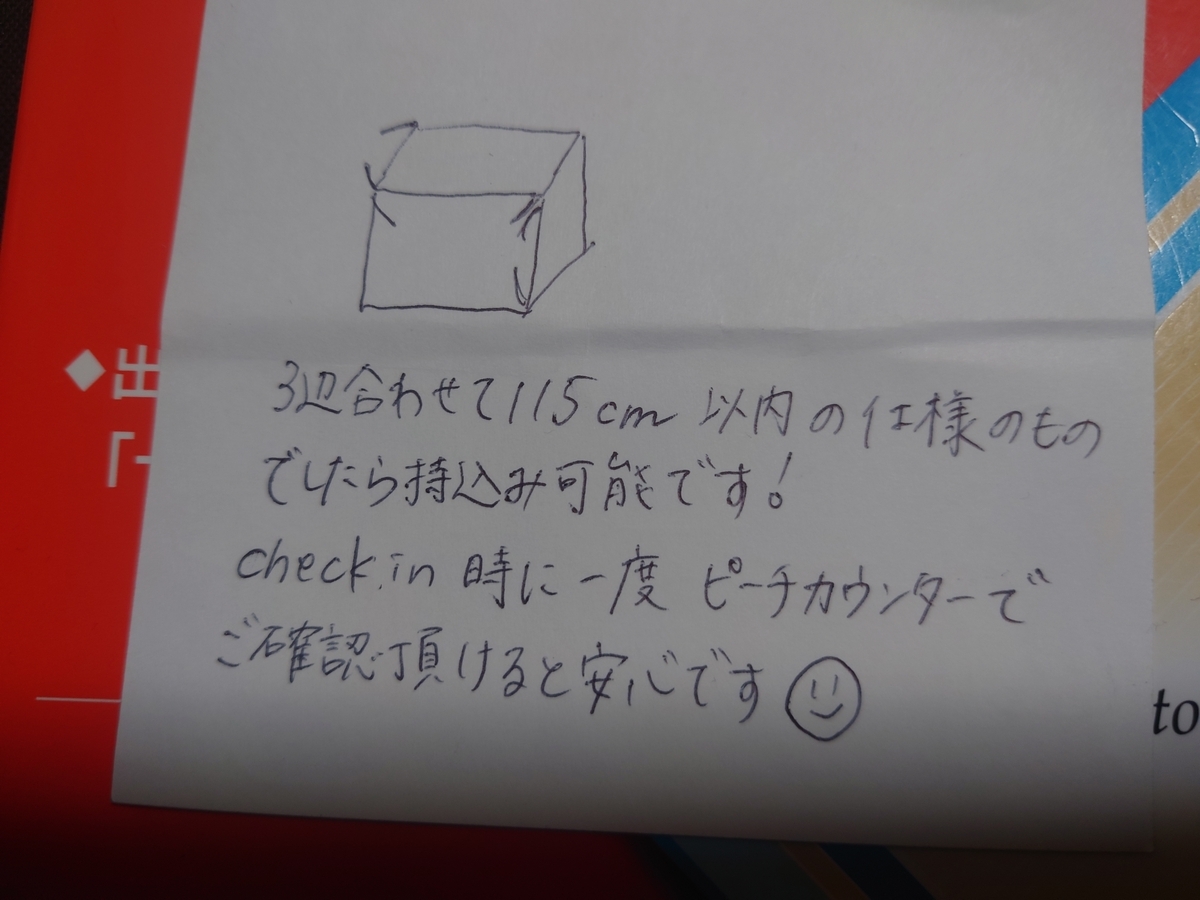 3辺合わせて115cm 以内の仕様のもの
でしたら持込み可能です!
check.in 時に一度 ピーチカウンターで
ご確認頂けると安心です
◆出
「
to